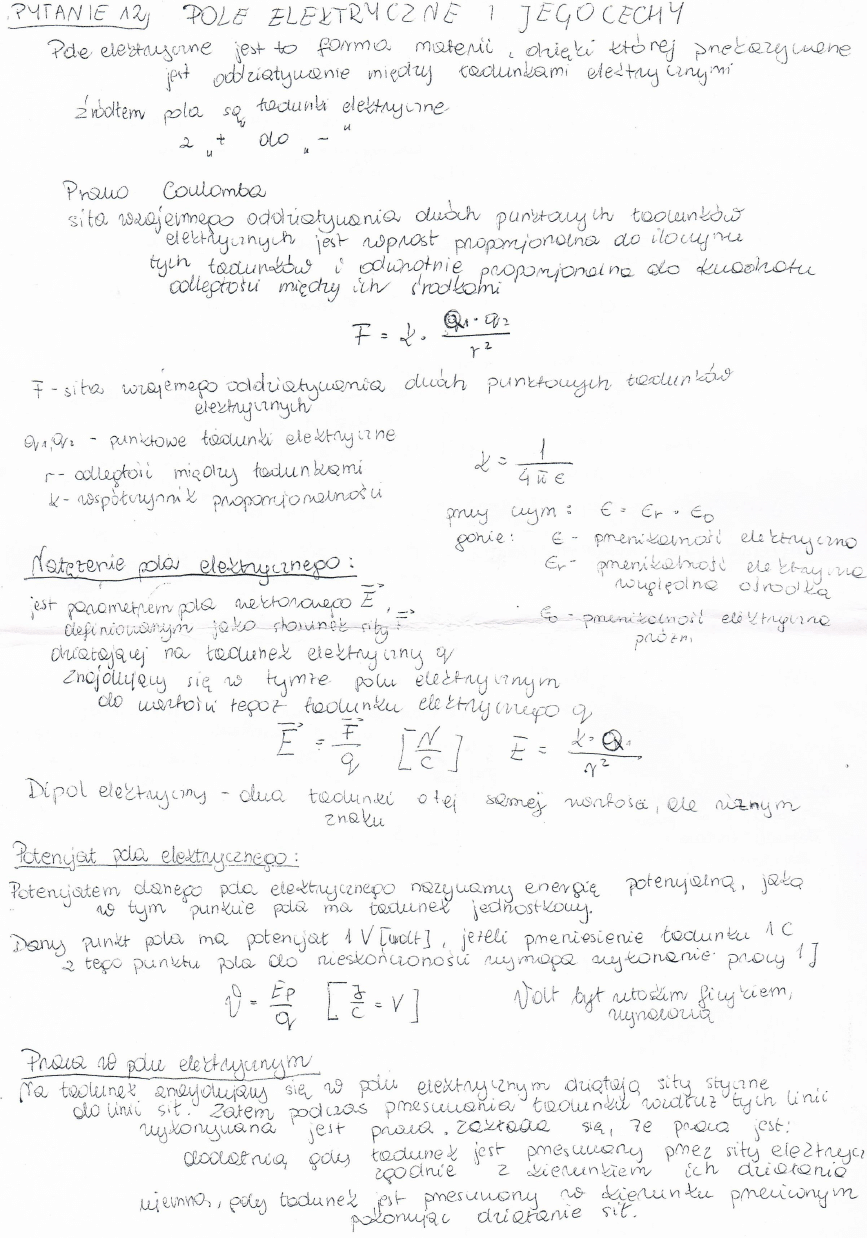 PYTANIE 12, POLE ELEKTRYCZNE I JEGO CECHY
Pole elektryczne jest to forma materii, dzięki której przekazywane
jest oddziaływanie między ładunkami elektrycznymi
źródłem pola są ładunki elektryczne
z „+" do „-"
Prawo Coulomba
siła wzajemnego oddziaływania dwóch punktowych ładunków
elektrycznych jest wprost proporcjonalna do iloczynu
tych ładunków i odwrotnie proporcjonalna do kwadratu
odległości między ich środkami
F = k · Q1 · q2 / r²
F - siła wzajemego oddziaływania dwóch punktowych ładunków
elektrycznych
q1, q2 - punktowe ładunki elektryczne
r - odległość między ładunkami
k - współczynnik proporcjonalności
k = 1 / 4πε
przy czym: ε = εr · ε0
gdzie: ε - przenikalność elektryczna
εr - przenikalność elektryczna
względna ośrodka
ε0 - przenikalność elektryczna
próżni
Natężenie pola elektrycznego:
jest parametrem pola wektorowego E,
definiowanym jako stosunek siły F
działającej na ładunek elektryczny q
znajdujący się w tymże polu elektrycznym
do wartości tegoż ładunku elektrycznego q
E = F / q [N/C] E = k · Q / r²
Dipol elektryczny - dwa ładunki o tej samej wartości, ale różnym
znaku
Potencjał pola elektrycznego:
Potencjałem danego pola elektrycznego nazywamy energię potencjalną, jaką
w tym punkcie pola ma ładunek jednostkowy.
Dany punkt pola ma potencjał 1 V [wolt], jeżeli przeniesienie ładunku 1 C
z tego punktu pola do nieskończoności wymaga wykonanie pracy 1 J
V = Ep / q [J/C = V]
Volt był włoskim fizykiem,
wynalazcą
Praca w polu elektrycznym
Na ładunek znajdujący się w polu elektrycznym działają siły styczne
do linii sił. Zatem podczas przesuwania ładunku wzdłuż tych linii
wykonywana jest praca. Zakłada się, że praca jest:
dodatnią gdy ładunek jest przesuwany przez siły elektrycz
zgodnie z kierunkiem ich działania
ujemną, gdy ładunek jest przesuwany w kierunku przeciwnym
pokonując działanie sił.